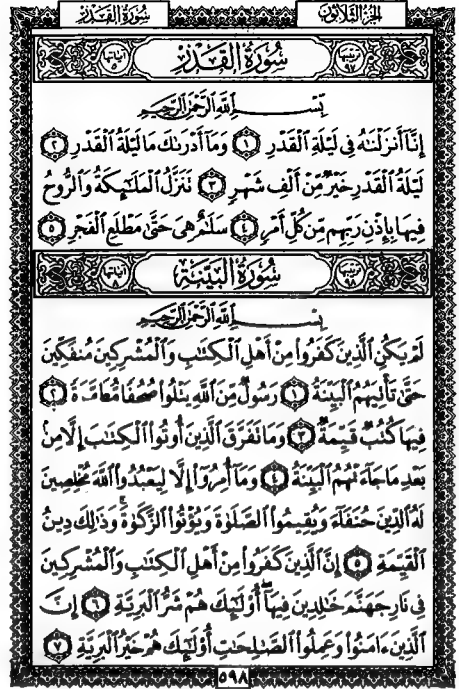 سُورَةُ القَدْرِ الجُزْءُ الثَّلَاثُونَ
ترتيبها ٩٧ سُورَةُ القَدْرِ آياتها ٥
بِسْمِ اللَّهِ الرَّحْمَٰنِ الرَّحِيمِ
إِنَّا أَنزَلْنَٰهُ فِي لَيْلَةِ الْقَدْرِ ١ وَمَا أَدْرَىٰكَ مَا لَيْلَةُ الْقَدْرِ ٢
لَيْلَةُ الْقَدْرِ خَيْرٌ مِّنْ أَلْفِ شَهْرٍ ٣ تَنَزَّلُ الْمَلَٰٓئِكَةُ وَالرُّوحُ
فِيهَا بِإِذْنِ رَبِّهِم مِّن كُلِّ أَمْرٍ ٤ سَلَٰمٌ هِيَ حَتَّىٰ مَطْلَعِ الْفَجْرِ ٥
ترتيبها ٩٨ سُورَةُ البَيِّنَةِ آياتها ٨
بِسْمِ اللَّهِ الرَّحْمَٰنِ الرَّحِيمِ
لَمْ يَكُنِ الَّذِينَ كَفَرُوا مِنْ أَهْلِ الْكِتَٰبِ وَالْمُشْرِكِينَ مُنفَكِّينَ
حَتَّىٰ تَأْتِيَهُمُ الْبَيِّنَةُ ١ رَسُولٌ مِّنَ اللَّهِ يَتْلُوا صُحُفًا مُّطَهَّرَةً ٢
فِيهَا كُتُبٌ قَيِّمَةٌ ٣ وَمَا تَفَرَّقَ الَّذِينَ أُوتُوا الْكِتَٰبَ إِلَّا مِنۢ
بَعْدِ مَا جَآءَتْهُمُ الْبَيِّنَةُ ٤ وَمَآ أُمِرُوٓا إِلَّا لِيَعْبُدُوا اللَّهَ مُخْلِصِينَ
لَهُ الدِّينَ حُنَفَآءَ وَيُقِيمُوا الصَّلَوٰةَ وَيُؤْتُوا الزَّكَوٰةَ وَذَٰلِكَ دِينُ
الْقَيِّمَةِ ٥ إِنَّ الَّذِينَ كَفَرُوا مِنْ أَهْلِ الْكِتَٰبِ وَالْمُشْرِكِينَ
فِي نَارِ جَهَنَّمَ خَٰلِدِينَ فِيهَآ أُو۟لَٰٓئِكَ هُمْ شَرُّ الْبَرِيَّةِ ٦ إِنَّ
الَّذِينَ ءَامَنُوا وَعَمِلُوا الصَّٰلِحَٰتِ أُو۟لَٰٓئِكَ هُمْ خَيْرُ الْبَرِيَّةِ ٧
٥٩٨